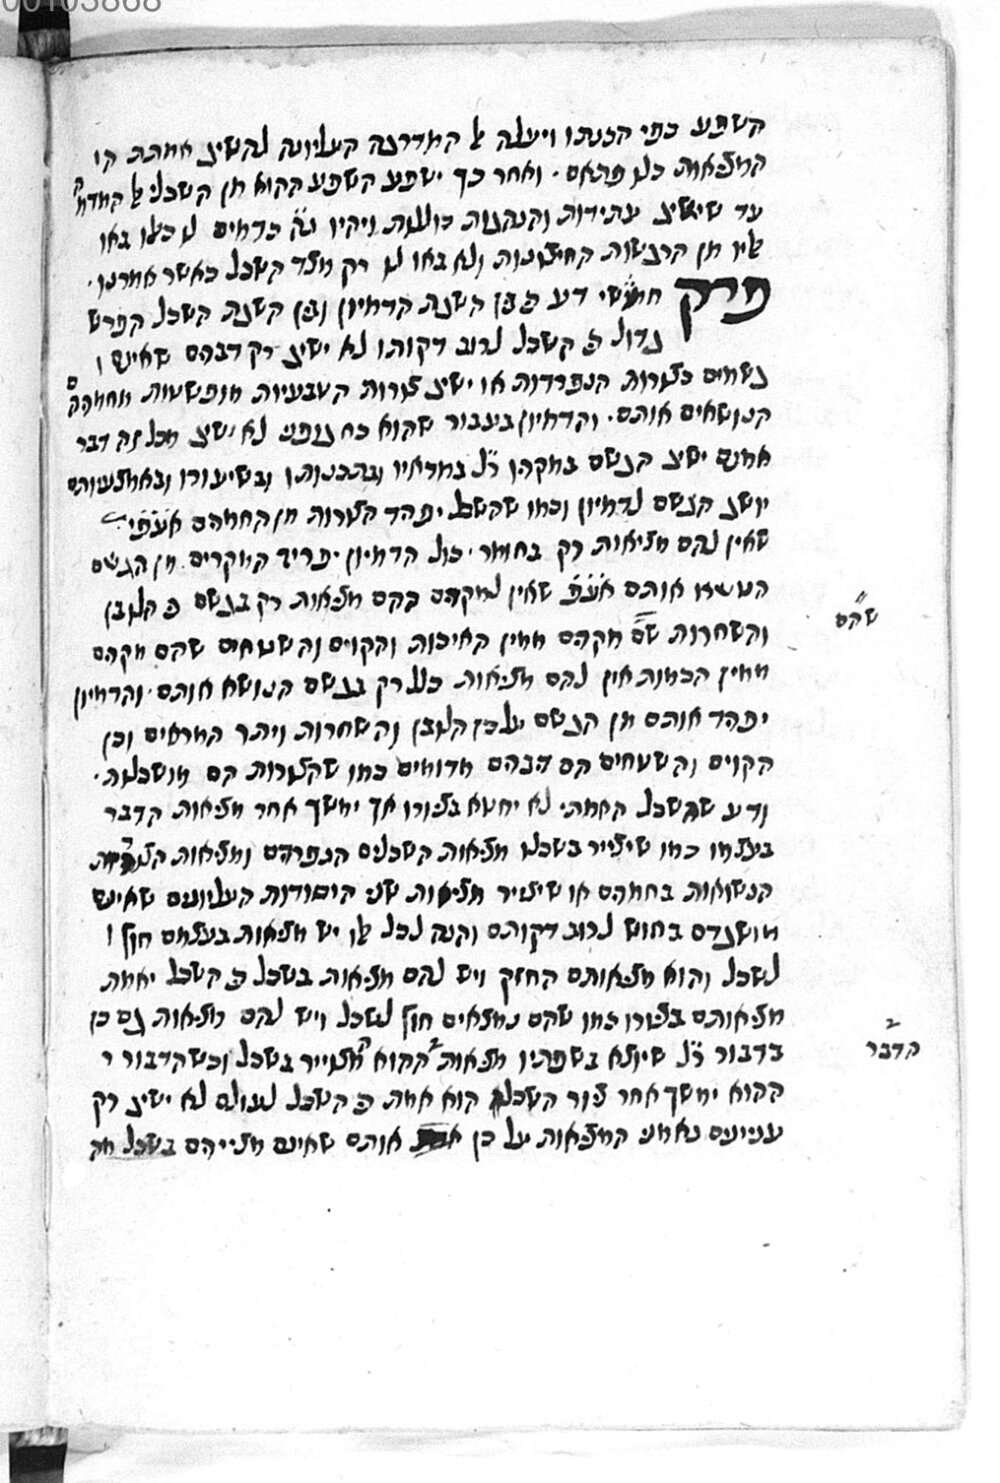 00103868
השפע כפי הכנתו ויעלה אל המדרגה העליונה להשיג אמתת הו
המציאות כלו פתאם · ואחר כך ישפע השפע ההוא מן השכלי אל המדמה
עד שישיג עתידות והנהגות כוללות ויהיו גם כדמיונם לו כאלו באו
אליו מן הרגשות החיצונות ולא באו לו רק מצד השכל כאשר אמרנו ·
פרק חמישי דע כי בין השגת הדמיון ובין השגת השכל הפרש
גדול כי השכל לרוב דקותו לא ישיג רק דברים שאינם ו
גשמים כצורות הנפרדות או ישיג צורות הטבעיות מופשטות מחמריהם
הנושאים אותם · והדמיון בעבור שהוא כח גופני לא ישיג מכל זה דבר
אמנם ישיג הגשם במקריו ר״ל במראיו ובתכונותיו ובשיעורו ובאמצעיותם
יושג הגשם לדמיון וכמו שהשכל יפריד הצורות מן החמרים אעפ״י
שאין להם מציאות רק בחומר · כול הדמיון יפריד המקרים מן הגשם
הנושא אותם אעפ״י שאין למקרים ההם מציאות רק בגשם כי הלובן
והשחרות שהם מקרים ממין האיכות והקוים והשטחים שהם מקרים
ממין הכמות אין להם מציאות כלל רק בגשם הנושא אותם · והדמיון
יפריד אותם מן הגשם על כן הלובן והשחרות ויתר המראים וכן
הקוים והשטחים הם דברים מדומים כמו שהצורות הם מושכלות ·
ודע שהשכל האמתי לא יחטא בציורו אך ימשך אחר מציאות הדבר
בעצמו כמו שיצייר בשכלו מציאות השכלים הנפרדים ומציאות הצורות
הנשואות בחמרים או שיצייר מציאות שני היסודות העליונים שאינם
מושגים בחוש לרוב דקותם והנה לכל אלו יש מציאות בעצמם חוץ ו
לשכל והוא מציאותם החזק ויש להם מציאות בשכל כי השכל יאמת
מציאותם בציורו כמו שהם נמצאים חוץ לשכל ויש להם מציאות גם כן
בדבור ר״ל שיוצא בשפתיו מציאות ההוא מצוייר בשכל וכשהדבור ר
ההוא ימשך אחר ציור השכל הוא אמת כי השכל לעולם לא ישיג רק
עניינים נאמני המציאות על כן אותם שאינם מצייהם בשכל מה
שהם
הדבר